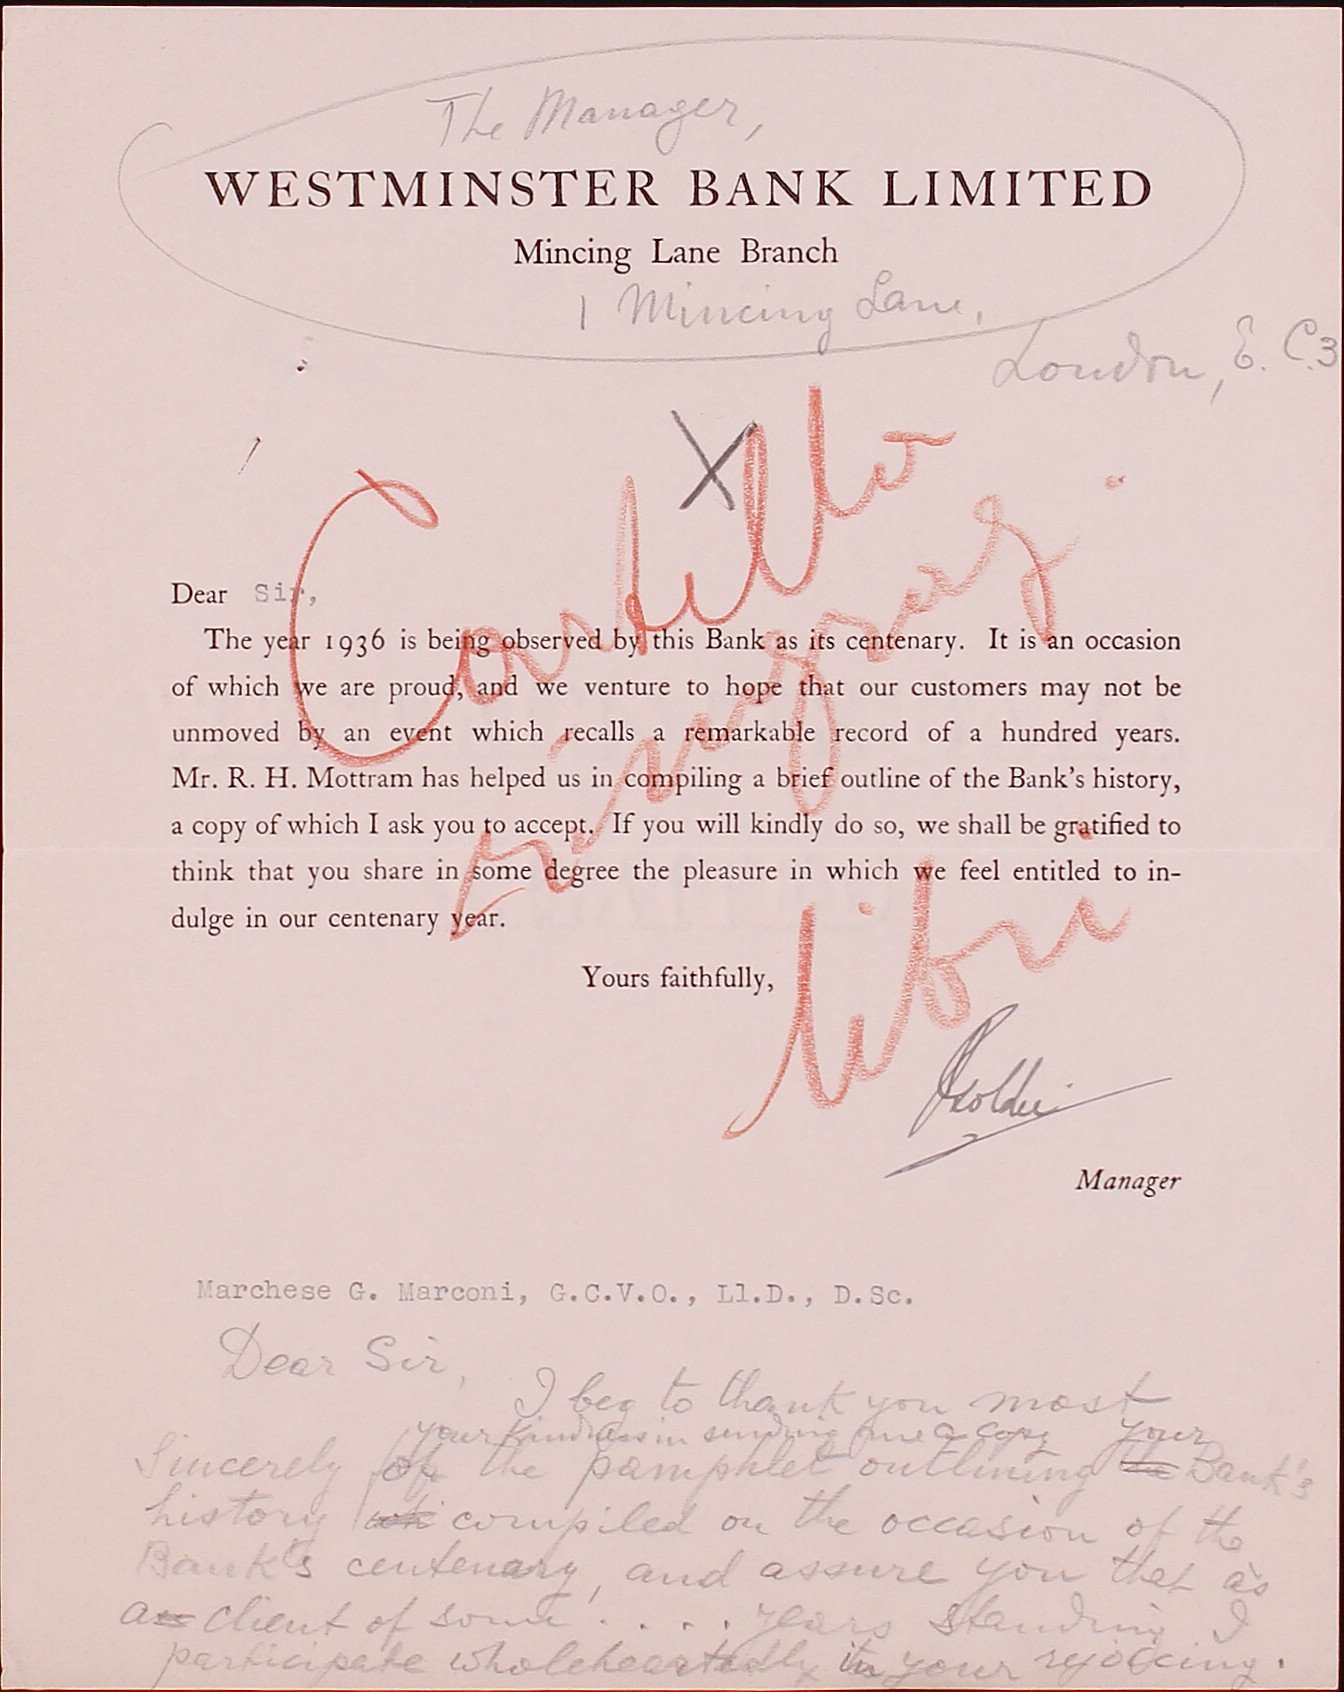 The Manager,
WESTMINSTER BANK LIMITED
Mincing Lane Branch
1 Mincing Lane,
London, E. C.3
X
Cartella
ringraz.
libri
Dear Sir,
The year 1936 is being observed by this Bank as its centenary. It is an occasion
of which we are proud, and we venture to hope that our customers may not be
unmoved by an event which recalls a remarkable record of a hundred years.
Mr. R. H. Mottram has helped us in compiling a brief outline of the Bank's history,
a copy of which I ask you to accept. If you will kindly do so, we shall be gratified to
think that you share in some degree the pleasure in which we feel entitled to in-
dulge in our centenary year.
Yours faithfully,
Manager
Marchese G. Marconi, G.C.V.O., Ll.D., D.Sc.
Dear Sir,
I beg to thank you most
your kindness in sending me a copy your
Sincerely of the pamphlet outlining the Bank's
history compiled on the occasion of the
Bank's centenary, and assure you that as
a client of some . . . . years standing I
participate wholeheartedly in your rejoicing.